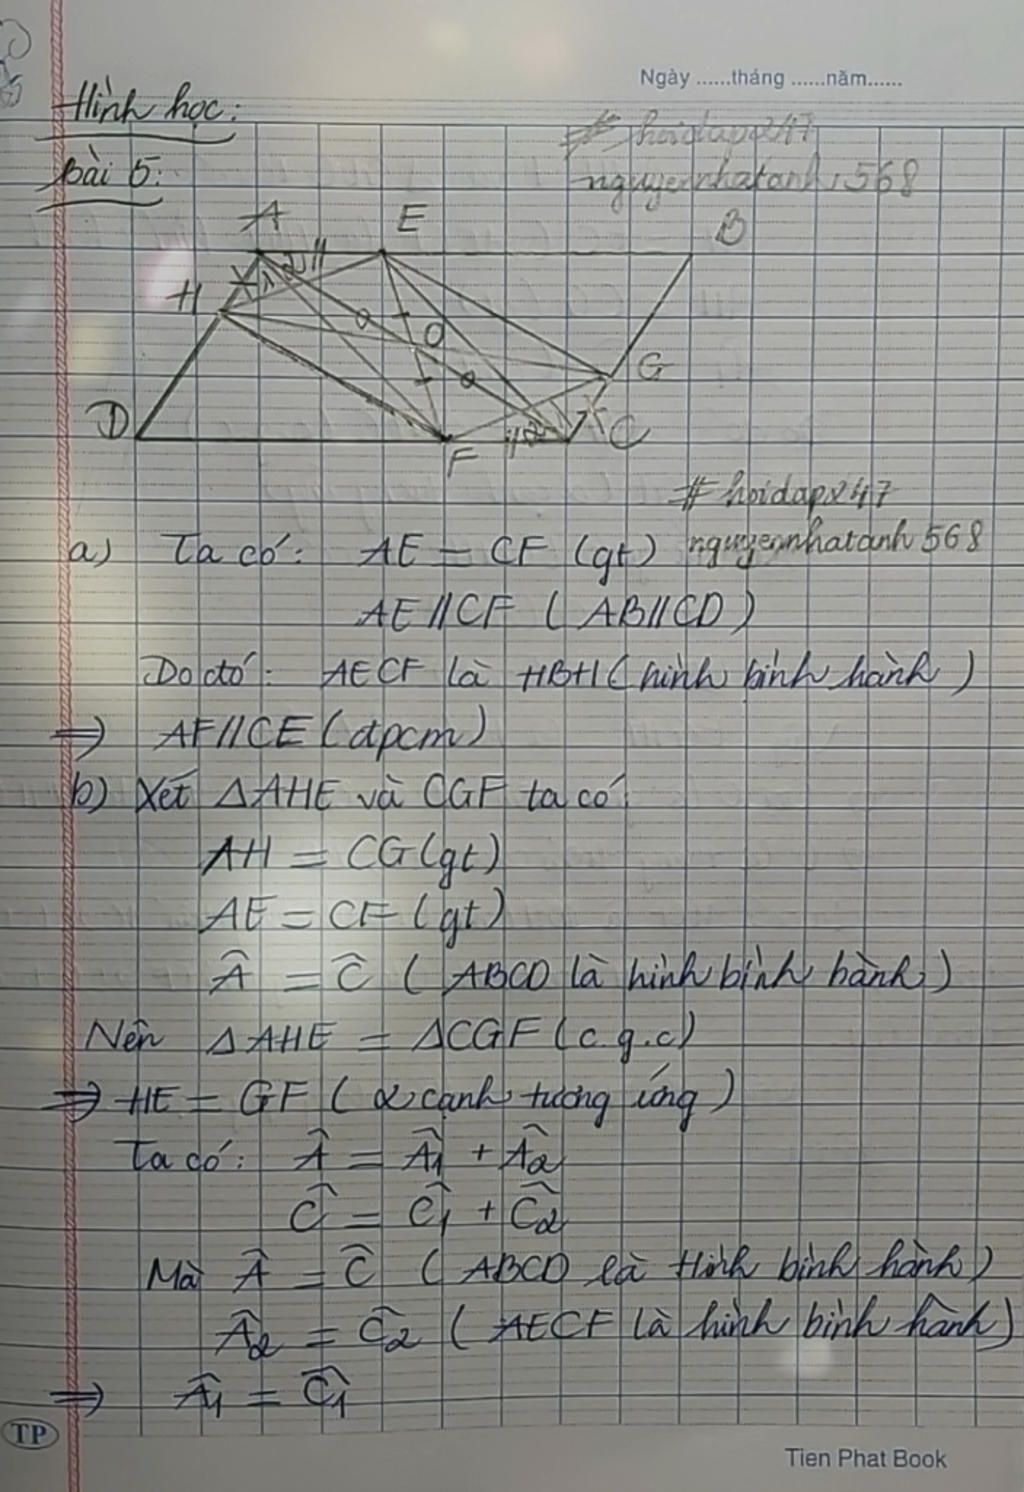 Ngày ......tháng ......năm......
Hình học:
# hoidap247
Bài 5:
nguyennhatanh568
A E B
H
O
G
D
F
C
# hoidap247
a) Ta có: AE = CF (gt) nguyennhatanh568
AE // CF ( AB // CD )
Do đó: AECF là HBH ( hình bình hành )
⇒ AF // CE (đpcm)
b) Xét ΔAHE và CGF ta có:
AH = CG (gt)
AE = CF (gt)
Â = Ĉ ( ABCD là hình bình hành )
Nên ΔAHE = ΔCGF (c.g.c)
⇒ HE = GF ( 2 cạnh tương ứng )
Ta có: Â = Â1 + Â2
Ĉ = Ĉ1 + Ĉ2
Mà Â = Ĉ ( ABCD là Hình bình hành )
Â2 = Ĉ2 ( AECF là hình bình hành )
⇒ Â1 = Ĉ1
TP
Tien Phat Book